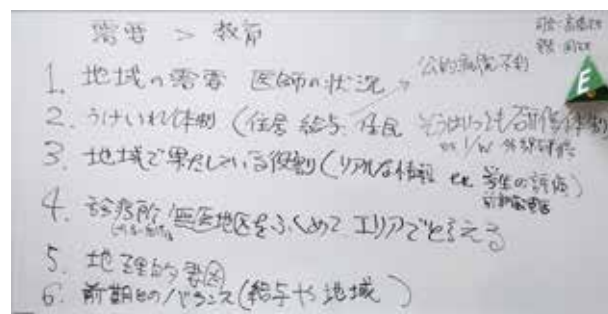 需要 > 教育
1. 地域の需要 医師の状況
公的病院不利
2. うけいれ体制 (住居 給与 住民 そうはいっても研修体制
3. 地域で果たしている役割 (リアルな情報 ex 学生の評価)
4. 診療所/無医地区をふくめて エリアで考える
5. 地理的要因
6. 前期とのバランス (給与や地域 )
E